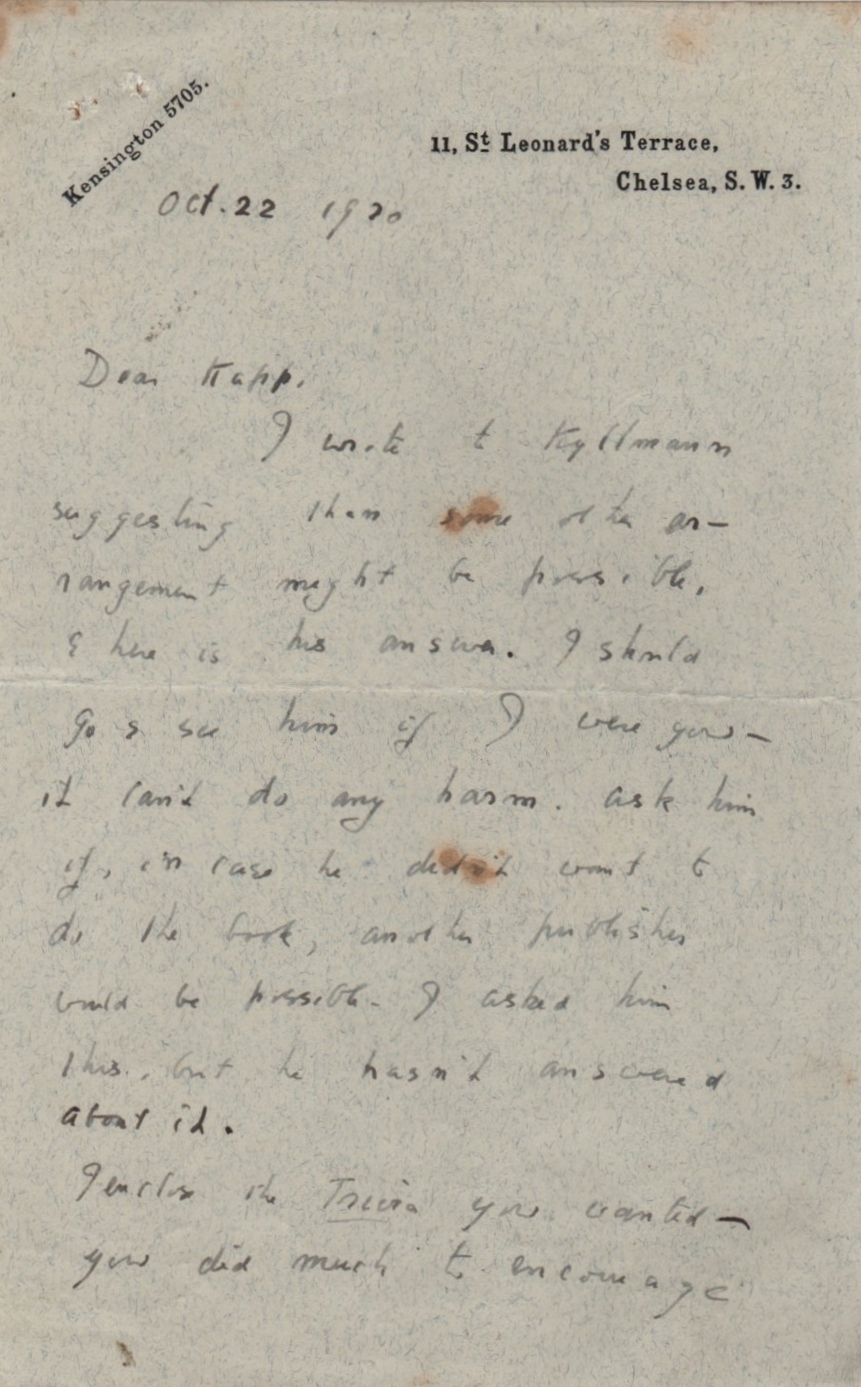 Kensington 5705.
11, St Leonard's Terrace,
Chelsea, S. W. 3.
Oct. 22 1920
Dear Kapp,
I wrote to Kyllmann
suggesting than some other ar-
rangement might be possible,
& here is his answer. I should
go & see him if I were you—
it can't do any harm. ask him
if, in case he didn't want to
do the book, another publisher
would be possible. I asked him
this, but he hasn't answered
about it.
I enclose the Trivia you wanted—
you did much to encourage